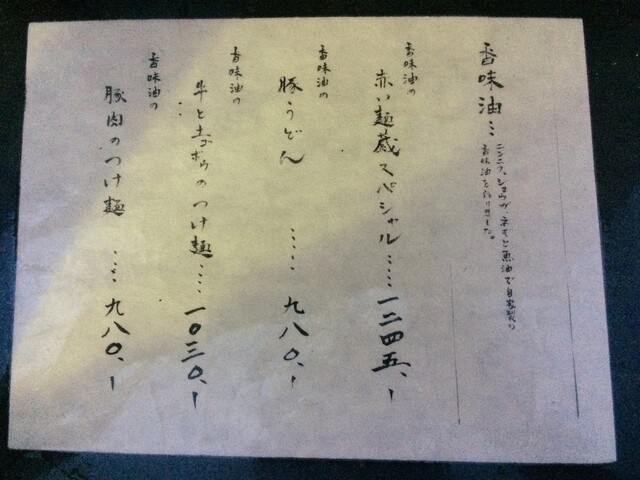 香味油…
ニンニク、ショウガ、ネギと魚油で自家製の
香味油を作りました。
香味油の
赤い麺蔵スペシャル……一二四五、ー
香味油の
豚うどん ……九八〇、ー
香味油の
牛と土ゴボウのつけ麺……一〇三〇、ー
香味油の
豚肉のつけ麺 ……九八〇、ー